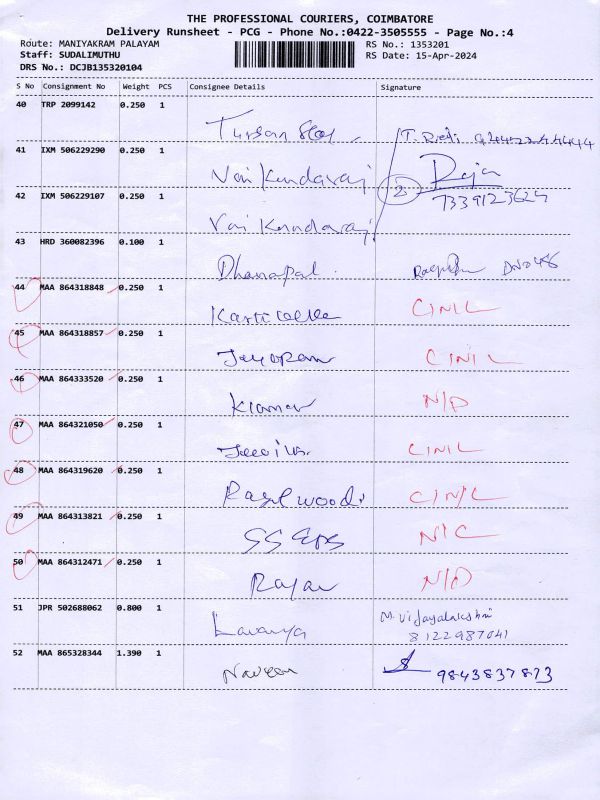 THE PROFESSIONAL COURIERS, COIMBATORE
Delivery Runsheet - PCG - Phone No.:0422-3505555 - Page No.:4
Route: MANIYAKRAM PALAYAM RS No.: 1353201
Staff: SUDALIMUTHU RS Date: 15-Apr-2024
DRS No.: DCJB135320104
S No Consignment No Weight PCS Consignee Details Signature
40 TRP 2099142 0.250 1
41 IXM 506229290 0.250 1 Vai Kundaraj Raja
2 7339123624
42 IXM 506229107 0.250 1 Vai Kundaraj
43 HRD 360082396 0.100 1 Dhanapal
44 MAA 864318848 0.250 1 C/N/L
45 MAA 864318857 0.250 1 Jayaram C/N/L
46 MAA 864333520 0.250 1 Kumar N/D
47 MAA 864321050 0.250 1 C/N/L
48 MAA 864319620 0.250 1 C/N/L
49 MAA 864313821 0.250 1 SS N/C
50 MAA 864312471 0.250 1 Rajan N/D
51 JPR 502688062 0.800 1 Lavanya M. Vijayalakshmi
8122987041
52 MAA 865328344 1.390 1 Naveen 9843837873